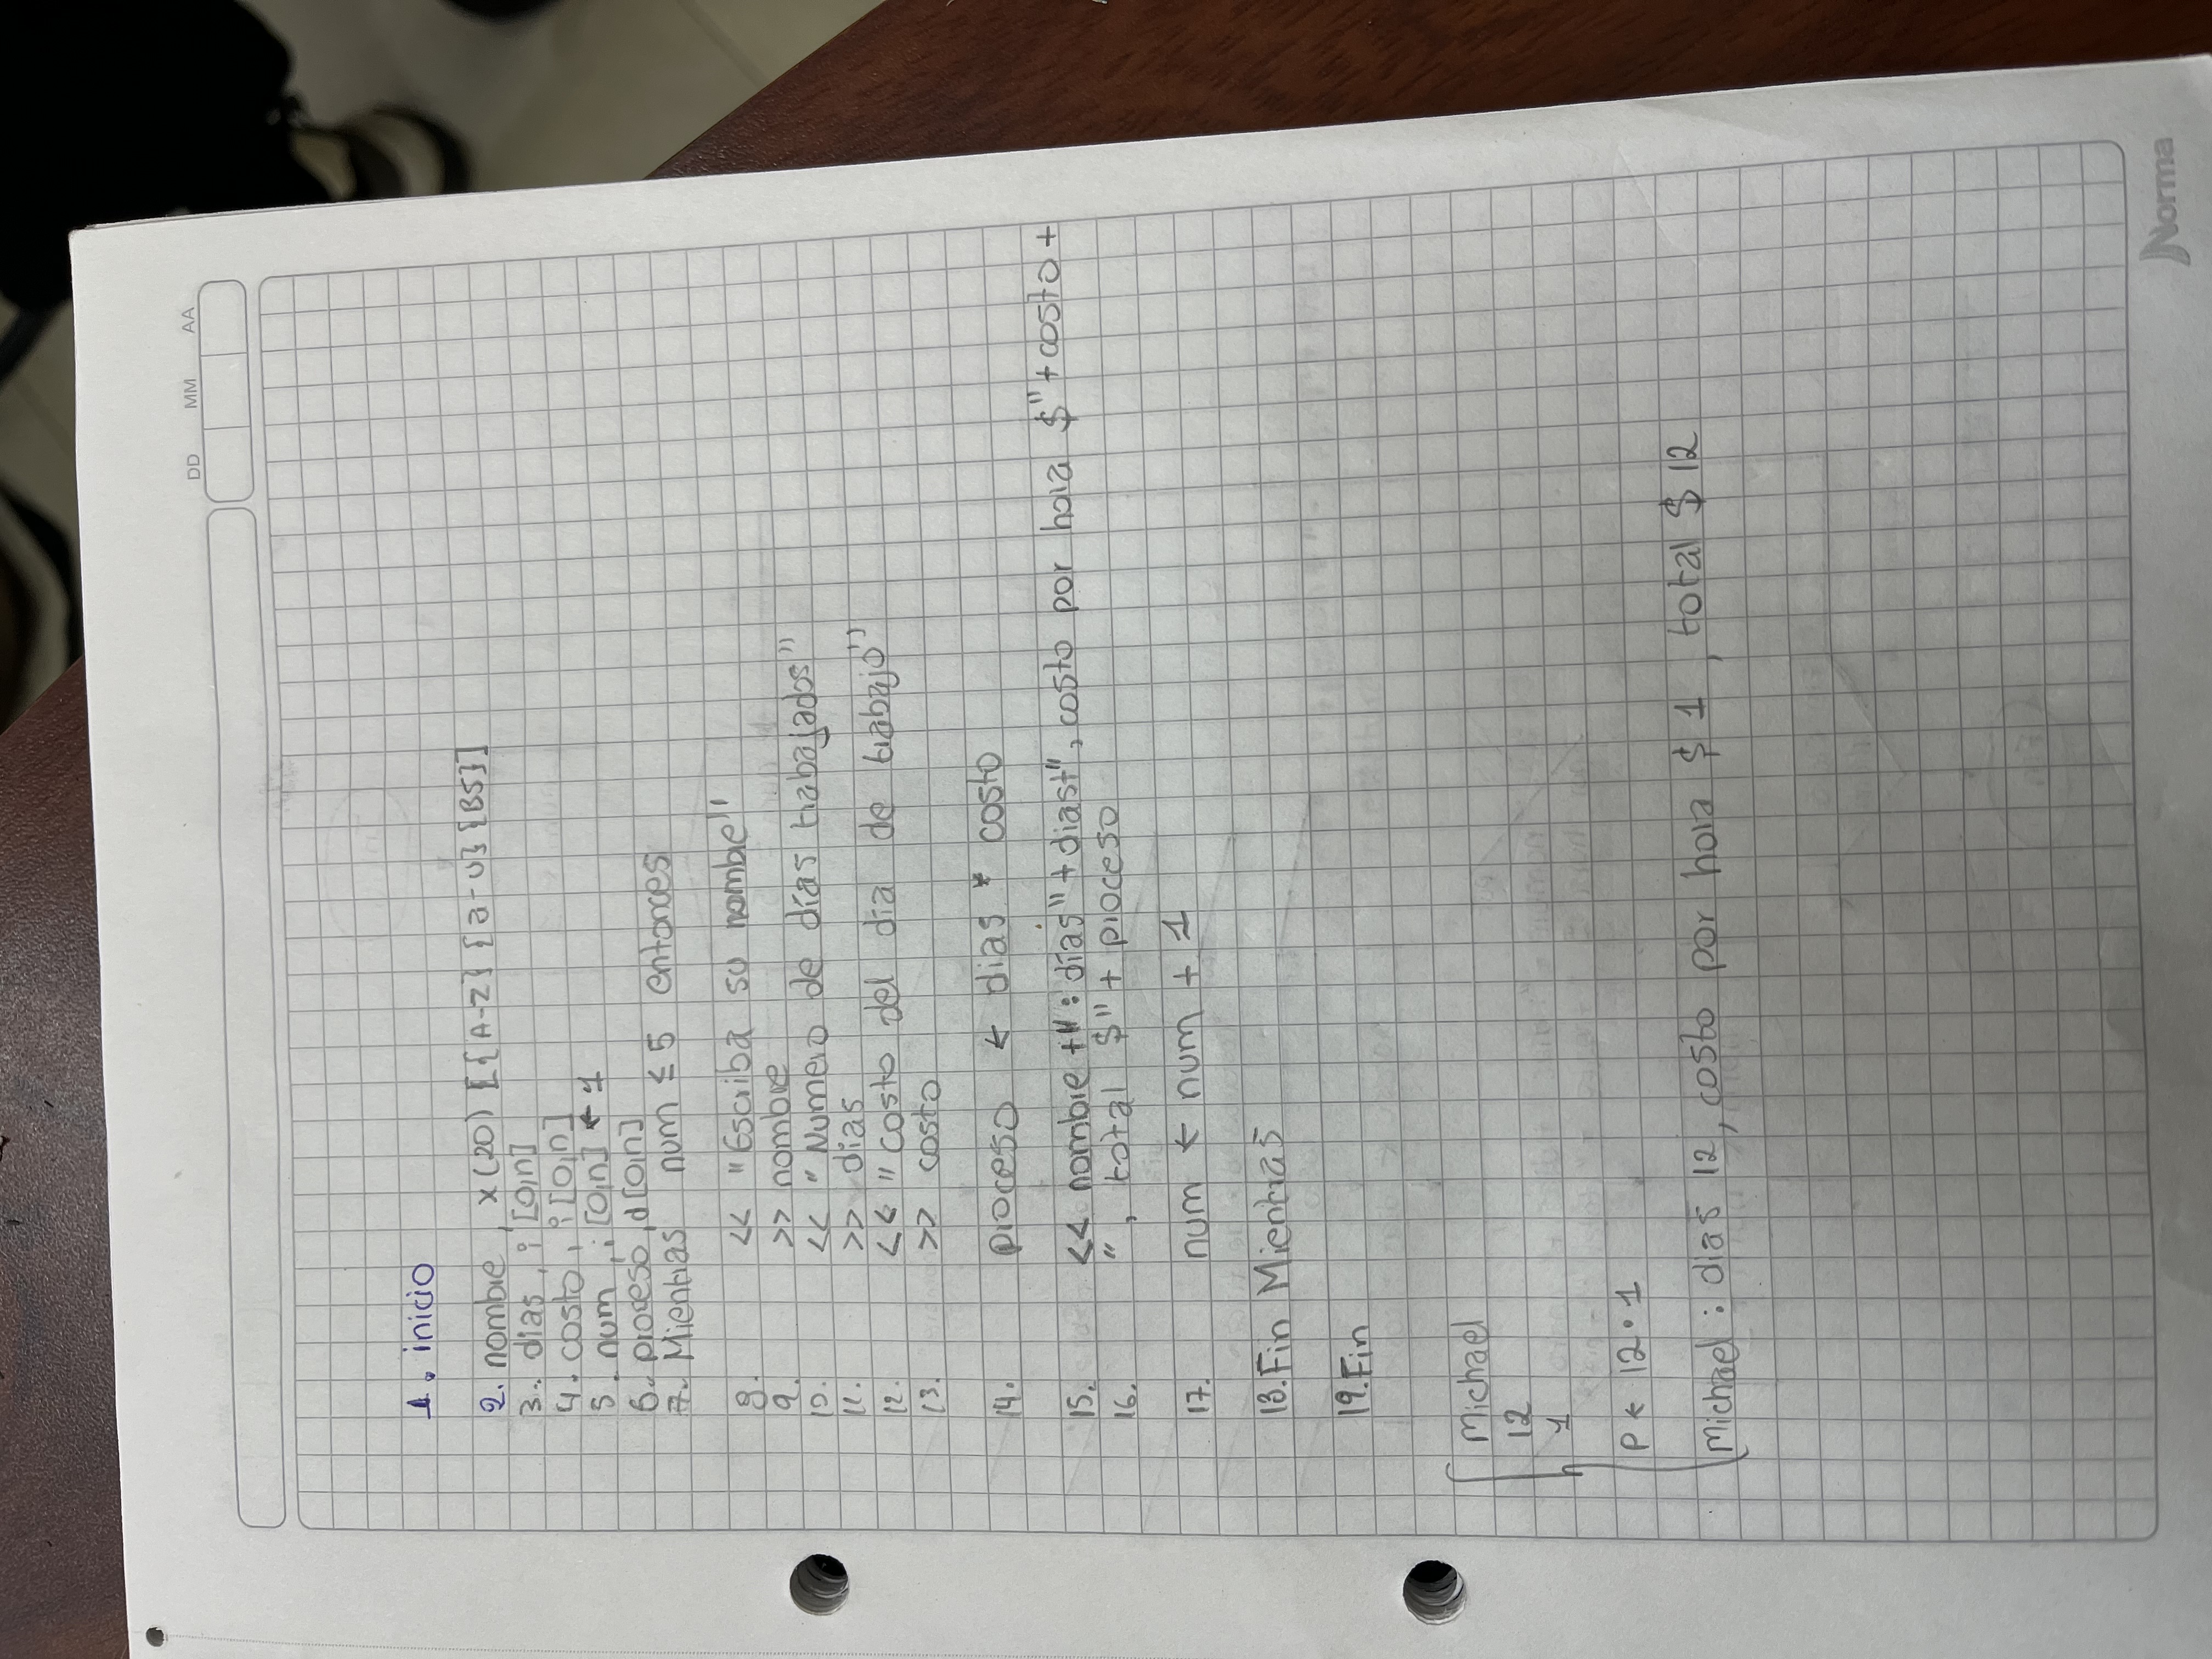 DD MM AA
1. inicio
2. nombre, x(20) [{A-Z} {a-u} {BS}]
3. dias, i [0,n]
4. costo, i [0,n]
5. num, i [0,n] ← 1
6. proceso, d [0,n]
7. Mientras num ≤ 5 entonces
8. << "Escriba su nombre"
9. >> nombre
10. << "Numero de días trabajados"
11. >> dias
12. << "costo del dia de trabajo"
13. >> costo
14. proceso ← dias * costo
15. << nombre +": días"+dias+", costo por hora $"+costo+
16. ", total $"+ proceso
17. num ← num + 1
18. Fin Mientras
19. Fin
Michael
12
1
P ← 12 • 1
Michael : dias 12, costo por hora $ 1, total $ 12
Norma